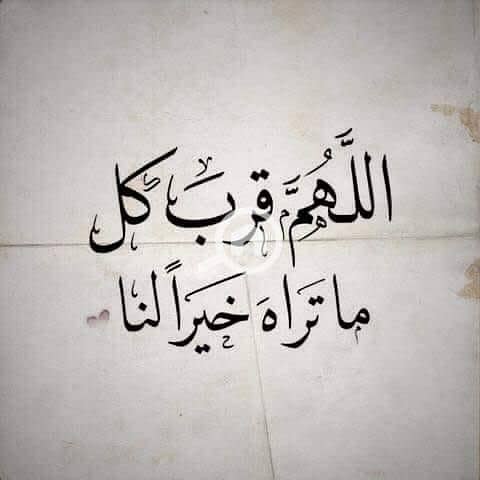 اللَّهُمَّ قرب كل
ما تَراهَ خَيراً لنا